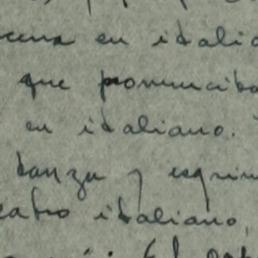 en italia
que pronunciba
en italiano.
danza y esgrim
eatro italiano,